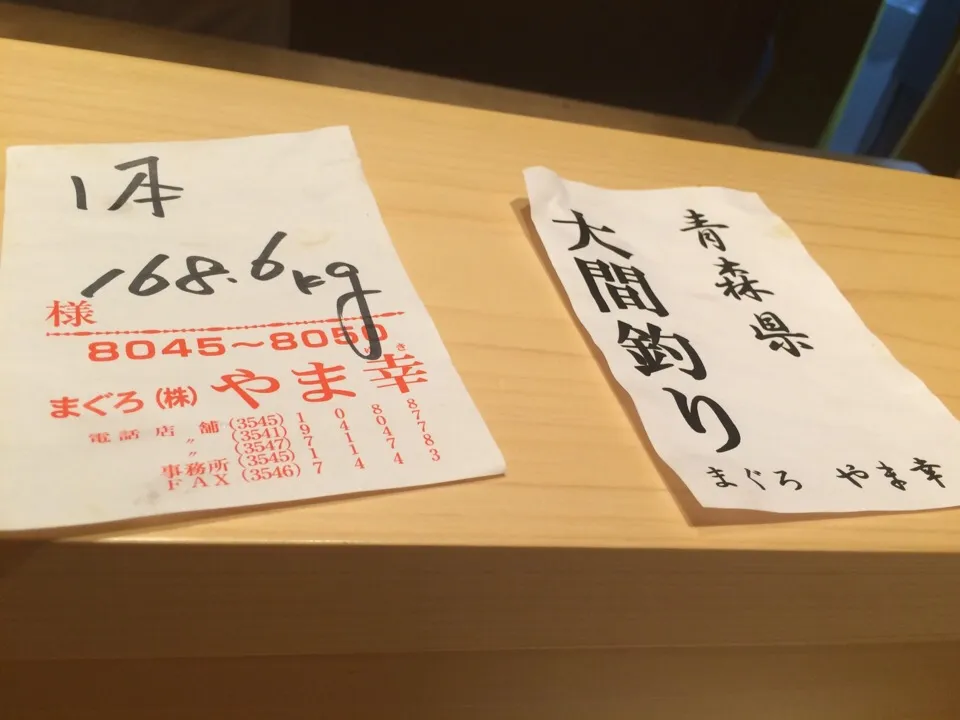 1本
168.6kg
様
8045～8050
まぐろ（株）やま幸
ゆき
電話店舗（3545）1088
〃（3541）9407
〃（3547）7178
事務所（3545）1743
ＦＡＸ（3546）7
青森県
大間釣り
まぐろ やま幸